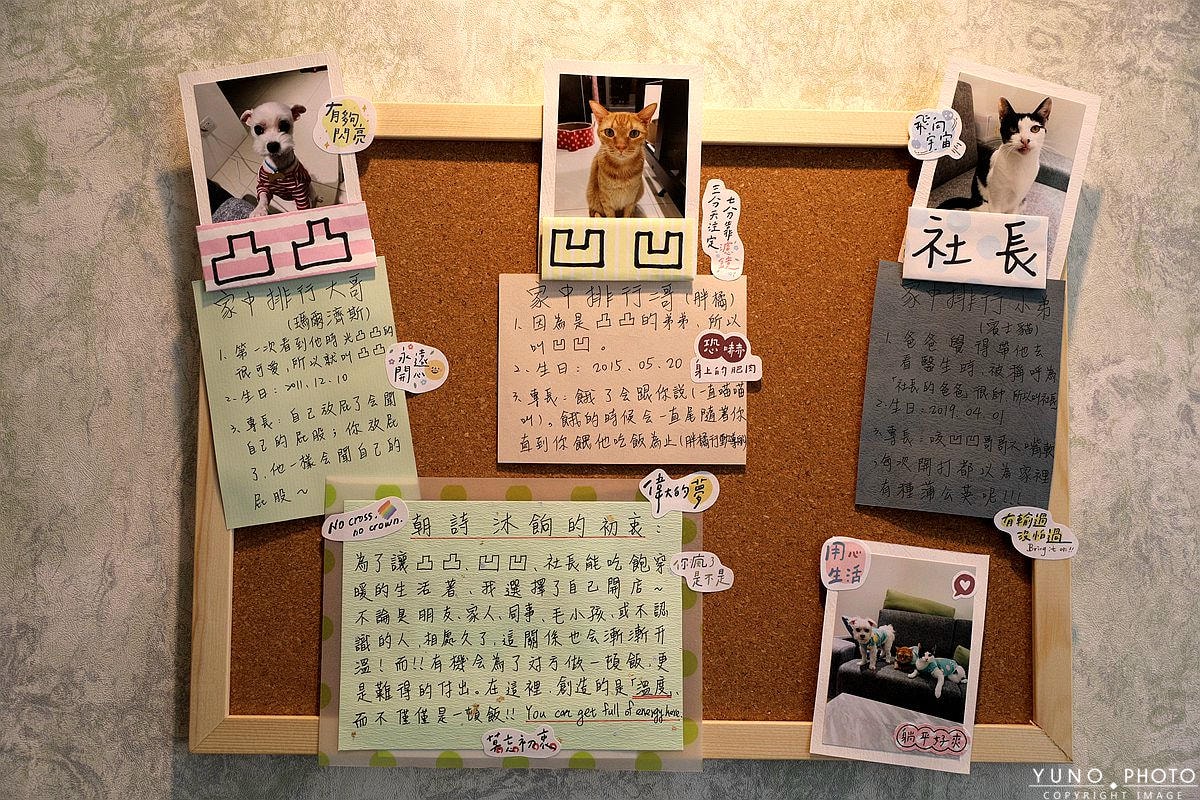 有夠
閃亮
凸凸
家中排行大哥
(瑪爾濟斯)
1. 第一次看到他時光凸凸的
很可愛，所以就叫凸凸
2. 生日：2011.12.10
3. 專長：自己放屁了会聞
自己的屁股；你放屁
了，他一樣会聞自己的
屁股～
永遠
開心
凹凹
三分天注定
七分靠濾鏡
家中排行二哥(胖橘)
1. 因為是凸凸的弟弟，所以
叫凹凹。
2. 生日：2015.05.20
3. 專長：餓了会跟你說(一直喵喵
叫)。餓的時候会一直尾隨著你
直到你餵他吃飯為止(胖橘行動
恐嚇
身上的肥肉
飛向
宇宙
社長
家中排行小弟
(賓士貓)
1. 爸爸覺得帶他去
看醫生時，被稱呼為
「社長的爸爸」很帥，所以叫社長
2. 生日：2019.04.01
3. 專長：咬凹凹哥哥
，每次開打都以為家裡
有種蒲公英呢!!!
有輸過
沒怕過
Bring it on!!
No cross,
no crown.
偉大的夢
朝詩沐餉的初衷：
為了讓凸凸、凹凹、社長能吃飽穿
暖的生活著，我選擇了自己開店～
不論是朋友、家人、同事、毛小孩、或不認
識的人，相處久了，這關係也会漸漸升
溫！而!!有機会為了对方做一頓飯，更
是難得的付出。在這裡，創造的是「溫度」，
而不僅僅是一頓飯!! You can get full of energy here.
你瘋了
是不是
莫忘初衷
用心
生活
躺平好爽
YUNO PHOTO
COPYRIGHT IMAGE